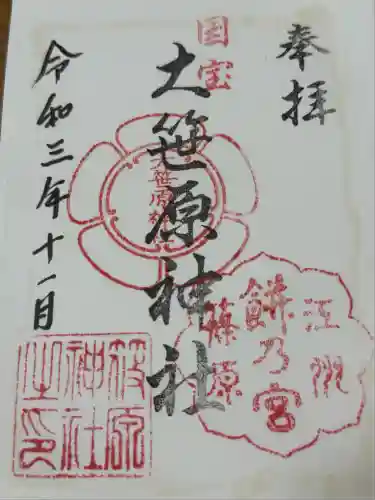 奉拝
国宝
大笹原神社
大笹原神社
江州
餅乃宮
篠原
令和三年十一月
笹原
神社
之印